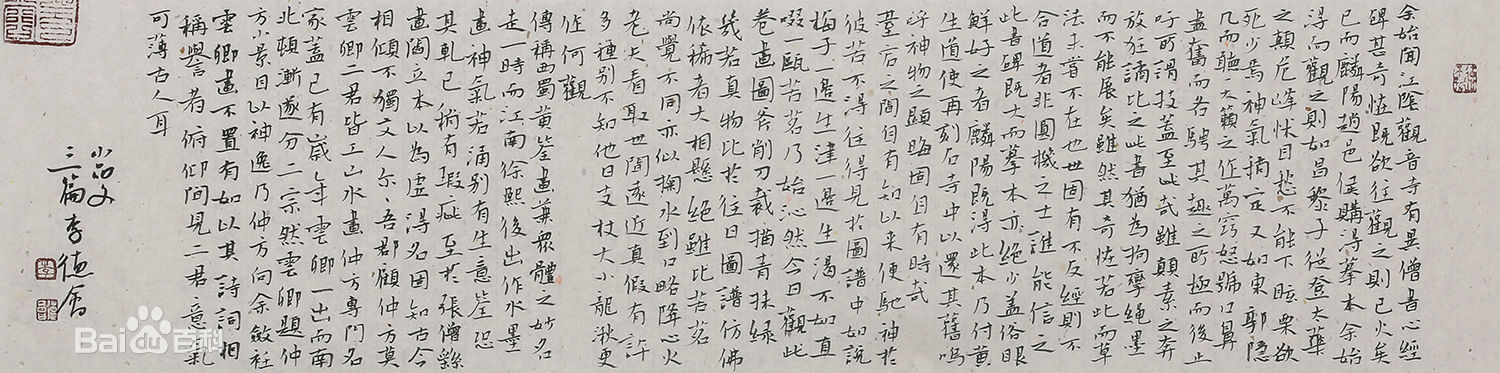 余始聞江陰觀音寺有異僧書心經
碑甚奇怪既欲往觀之則已火矣
已而麟陽趙邑侯購得摹本余始
得而觀之則如昌黎子從登太華
之顛危峰怵目愁不能下眩栗欲
死少焉神氣稍定又如東郭隱
几而聽大籟之作萬竅怒號口鼻
盡奮而各騁其趣之所極而後止
吁所謂技蓋至此哉雖顛素之奔
放狂譎比之此書猶為拘攣繩墨
而不能展矣雖然其奇怪若此而草
法未嘗不在也世固有不反經則不
合道者非圓機之士誰能信之
此書碑既大而摹本亦絕少蓋俗眼
鮮好之者麟陽既得此本乃付黃
生道使再刻石寺中以還其舊嗚
呼神物之顯晦固自有時哉
臺宕之間自有知以來便馳神於
彼苦不得往得見於圖譜中如說
梅子一邊生津一邊生渴不如直
啜一甌苦茗乃始沁然今日觀此
卷畫圖斧削刀裁描青抹綠
幾若真物比於往日圖譜仿佛
依稀者大相懸絕雖比苦茗
尚覺不同亦似掬水到口略降心火
老夫看取世間遠近真假有許
多種別不知他日支杖大小龍湫更
作何觀
傳稱西蜀黃筌畫兼眾體之妙名
走一時而江南徐熙後出作水墨
畫神氣若涌別有生意筌恐
其軋己稍有瑕疵至於張僧繇
畫閻立本以為虛得名固知古今
相傾不獨文人尔吾郡顧仲方莫
雲卿二君皆工山水畫仲方專門名
家蓋已有歲年雲卿一出而南
北頓漸遂分二宗然雲卿題仲
方小景目以神逸乃仲方向余斂衽
雲卿畫不置有如以其詩詞相
稱譽者俯仰間見二君意氣
可薄古人耳
小品文
三篇李德會
Baidu百科